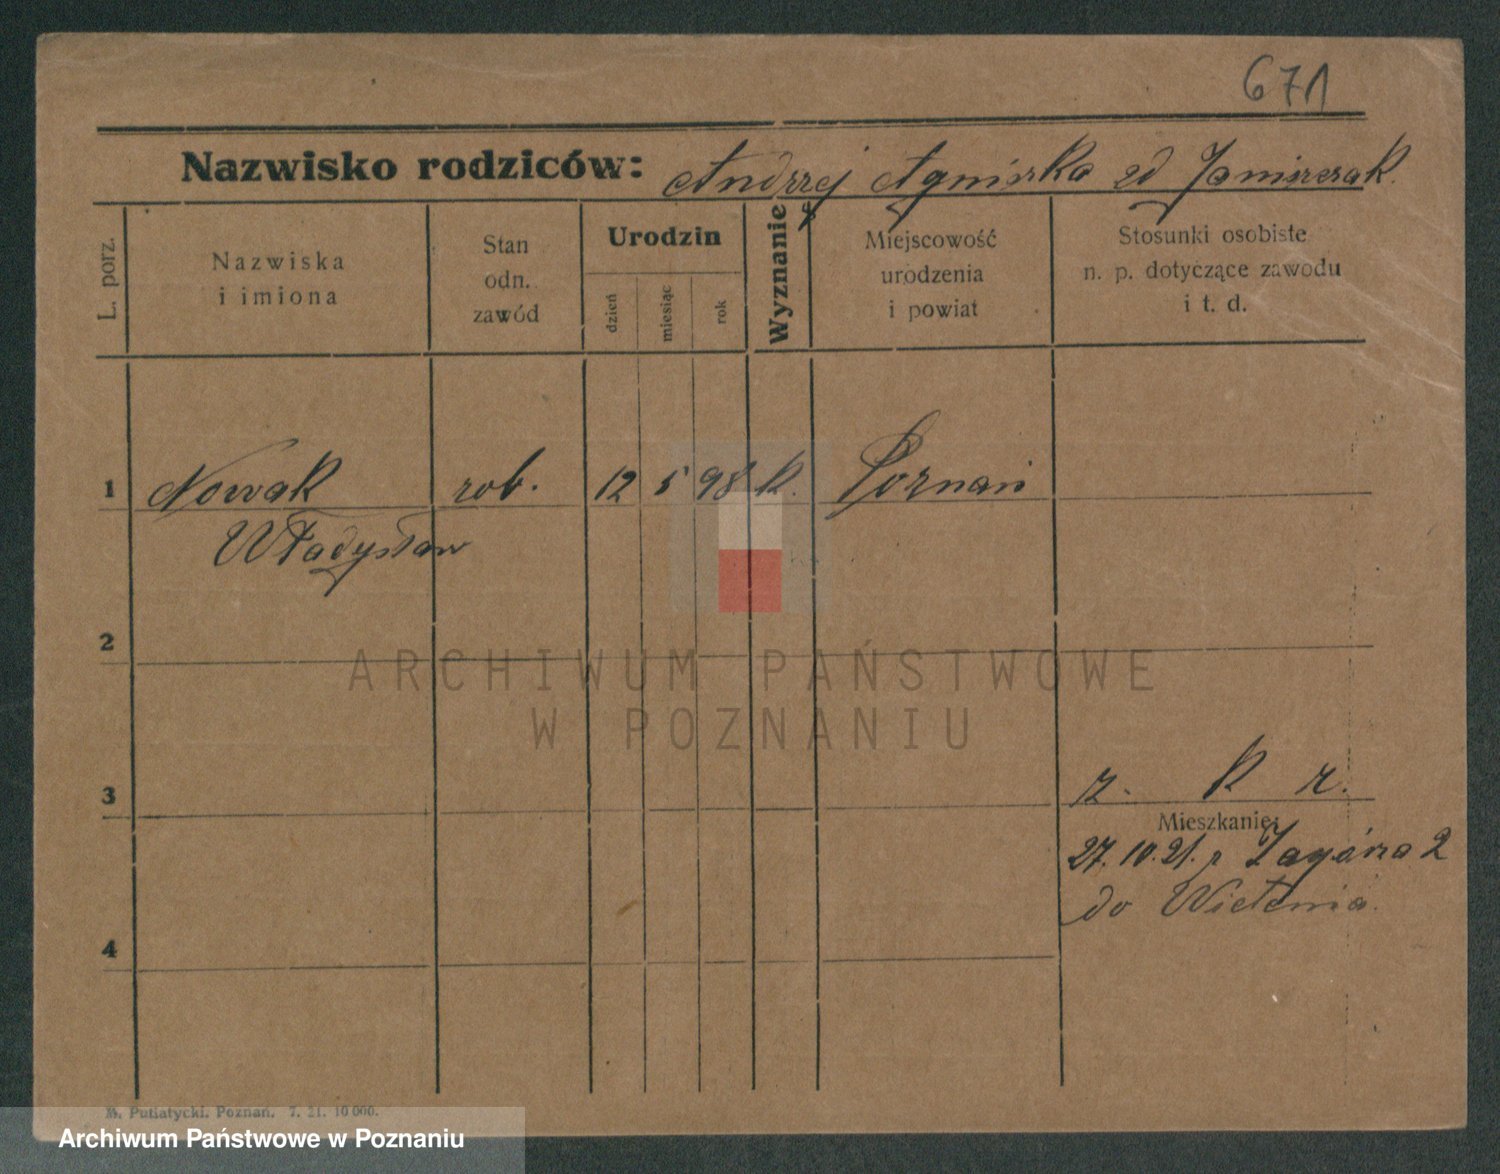 671
Nazwisko rodziców: Andrzej Agnieszka zd Janiszczak.
L. porz.
Nazwiska
i imiona
Stan
odn.
zawód
Urodzin
dzień
miesiąc
rok
Wyznanie
Miejscowość
urodzenia
i powiat
Stosunki osobiste
n. p. dotyczące zawodu
i t. d.
1 Nowak rob. 12 5 98 k. Poznań
Władysław
2
ARCHIWUM PAŃSTWOWE
W POZNANIU
z. k r.
3
Mieszkanie:
27.10.21. z Zagórza 2
do Wielenia.
4
M. Putiatycki. Poznań. 7. 21. 10 000.
Archiwum Państwowe w Poznaniu